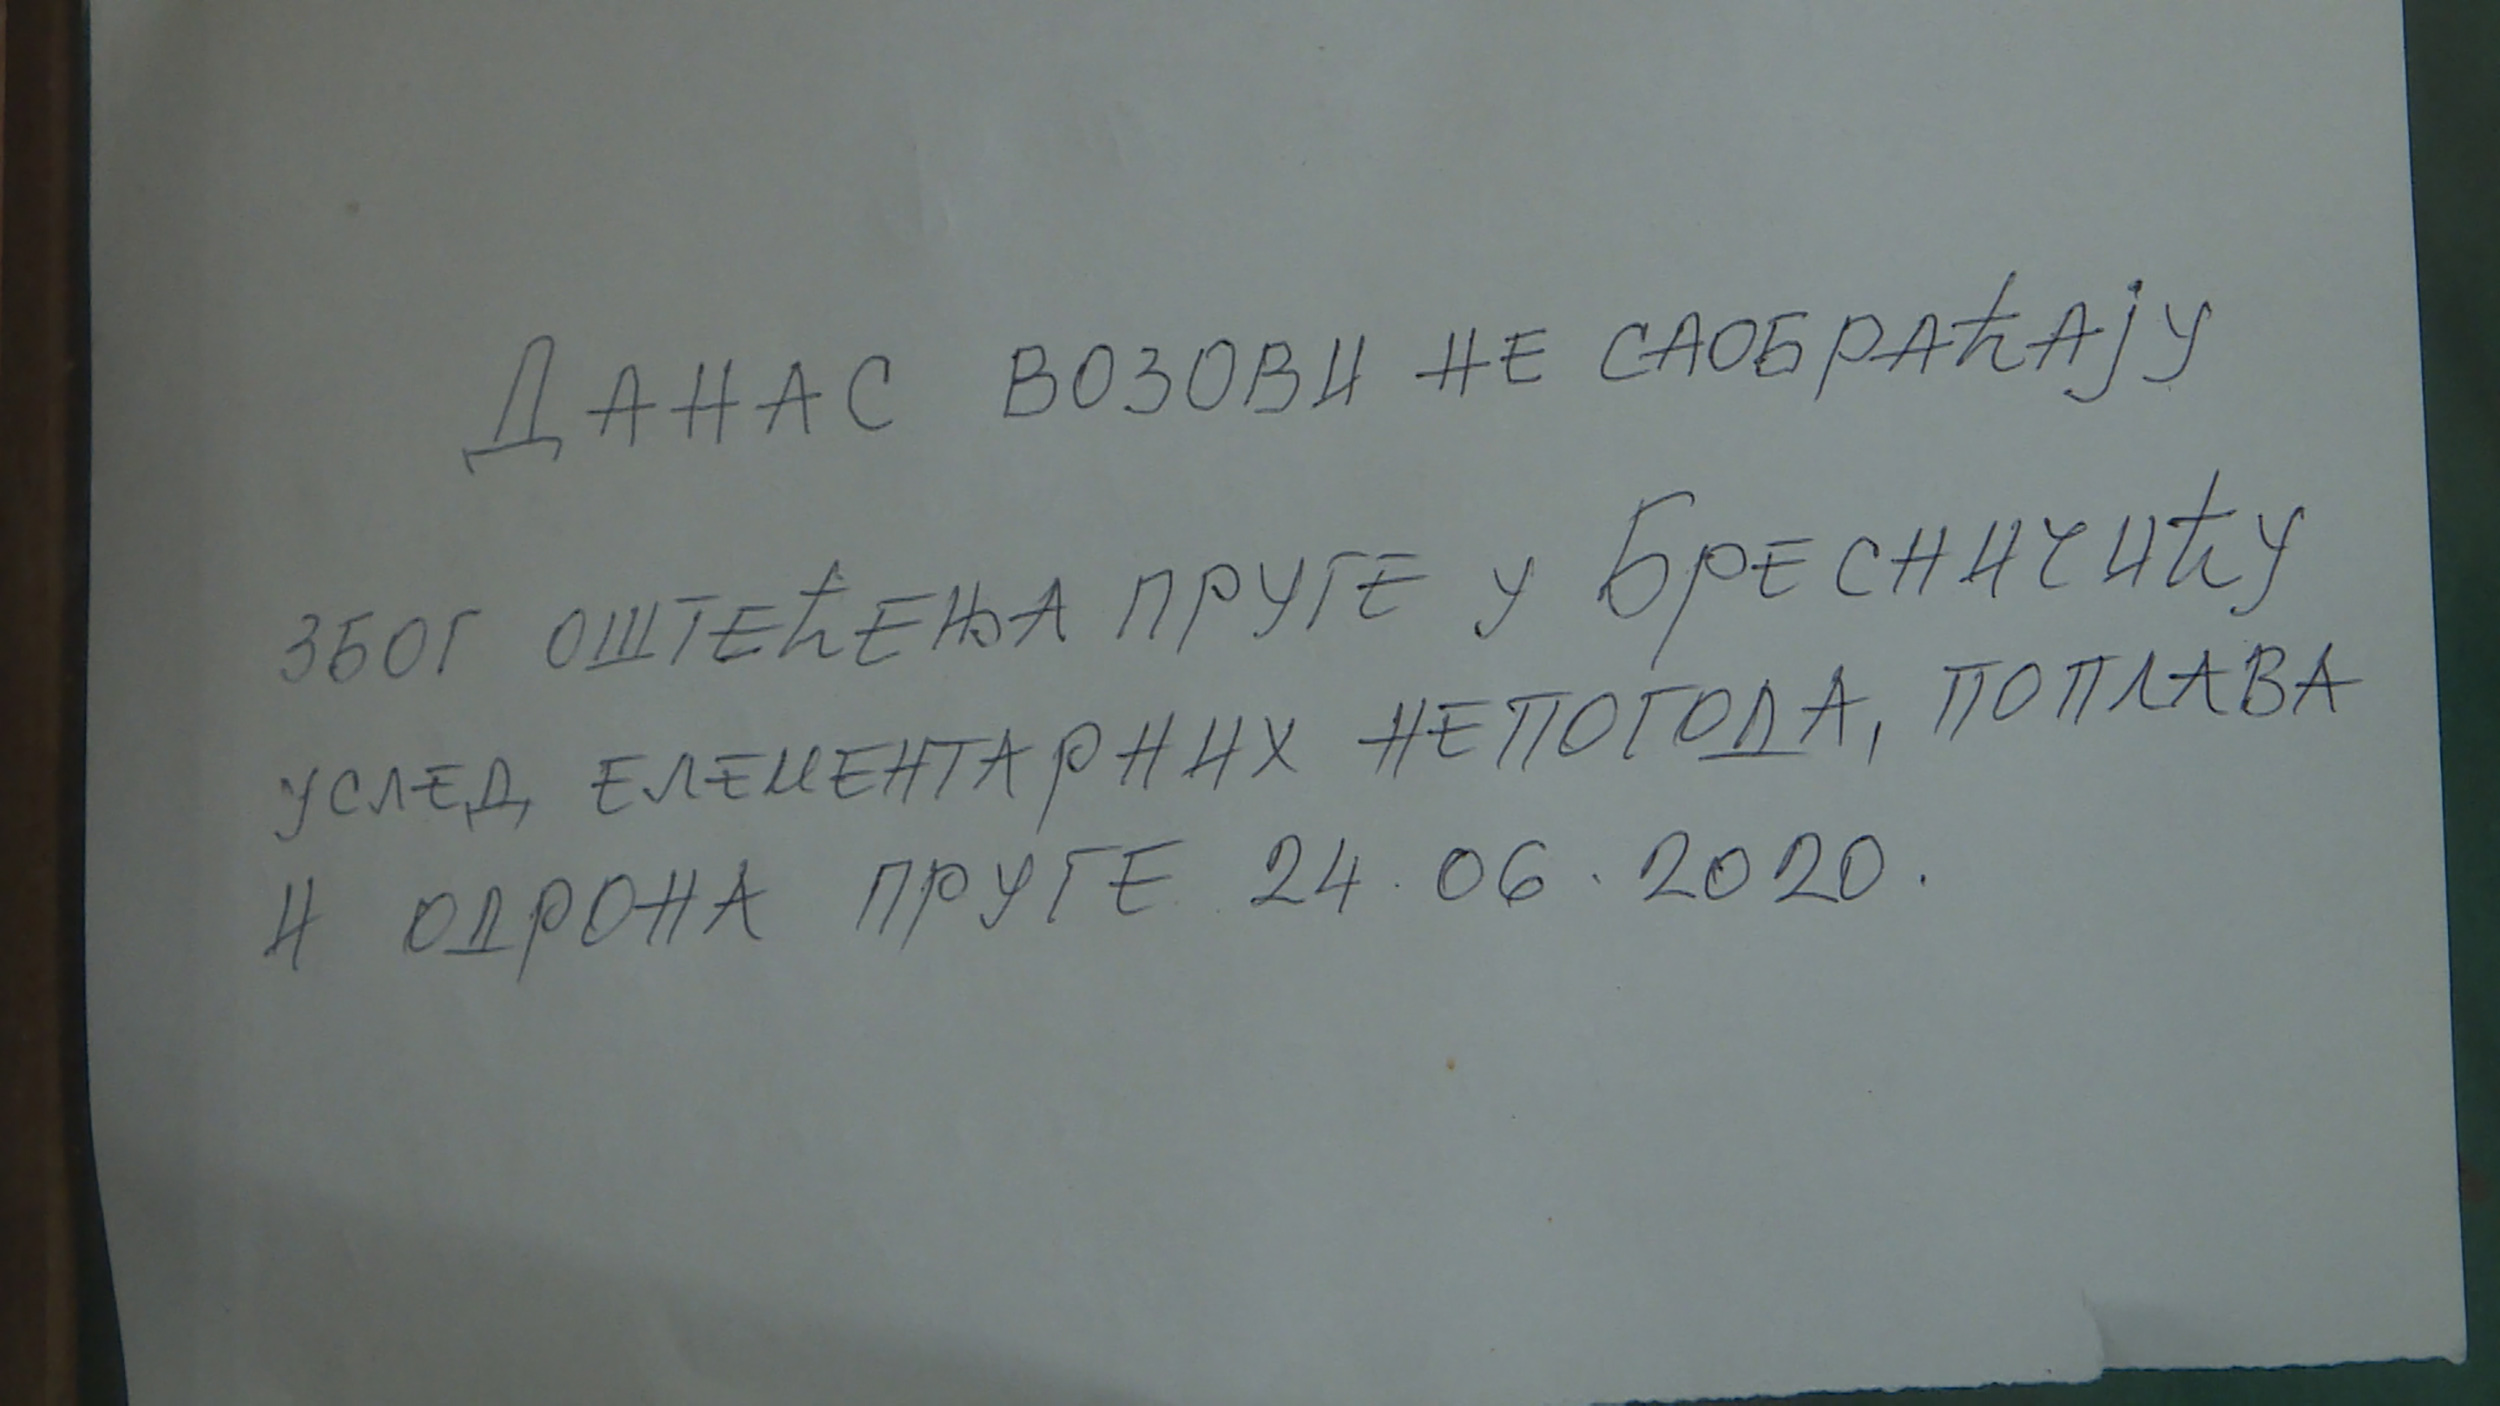 ДАНАС ВОЗОВИ НЕ САОБРАЋАЈУ
ЗБОГ ОШТЕЋЕЊА ПРУГЕ У БРЕСНИЧИЋУ
УСЛЕД ЕЛЕМЕНТАРНИХ НЕПОГОДА, ПОПЛАВА
И ОДРОНА ПРУГЕ 24.06.2020.